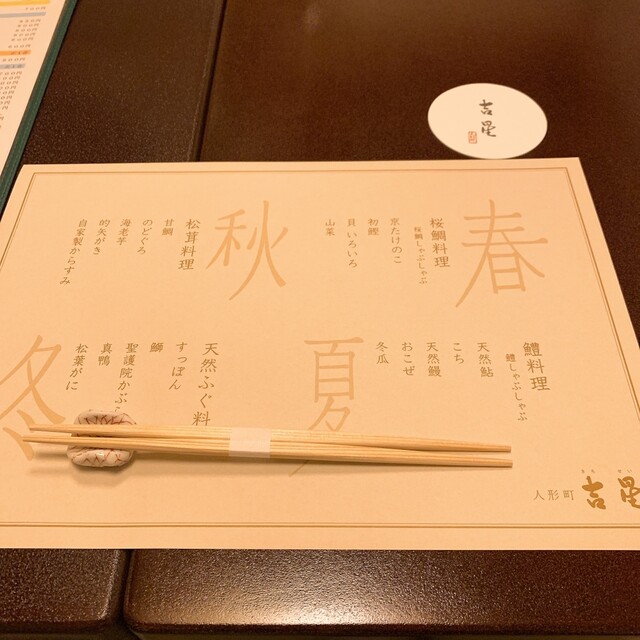 吉星
春
桜鯛料理
桜鯛しゃぶしゃぶ
京たけのこ
初鰹
貝いろいろ
山菜
夏
鱧料理
鱧しゃぶしゃぶ
天然鮎
こち
天然鰻
おこぜ
冬瓜
秋
松茸料理
甘鯛
のどぐろ
海老芋
的矢がき
自家製からすみ
冬
天然ふぐ料
すっぽん
鰤
聖護院かぶ
真鴨
松葉がに
人形町
吉星